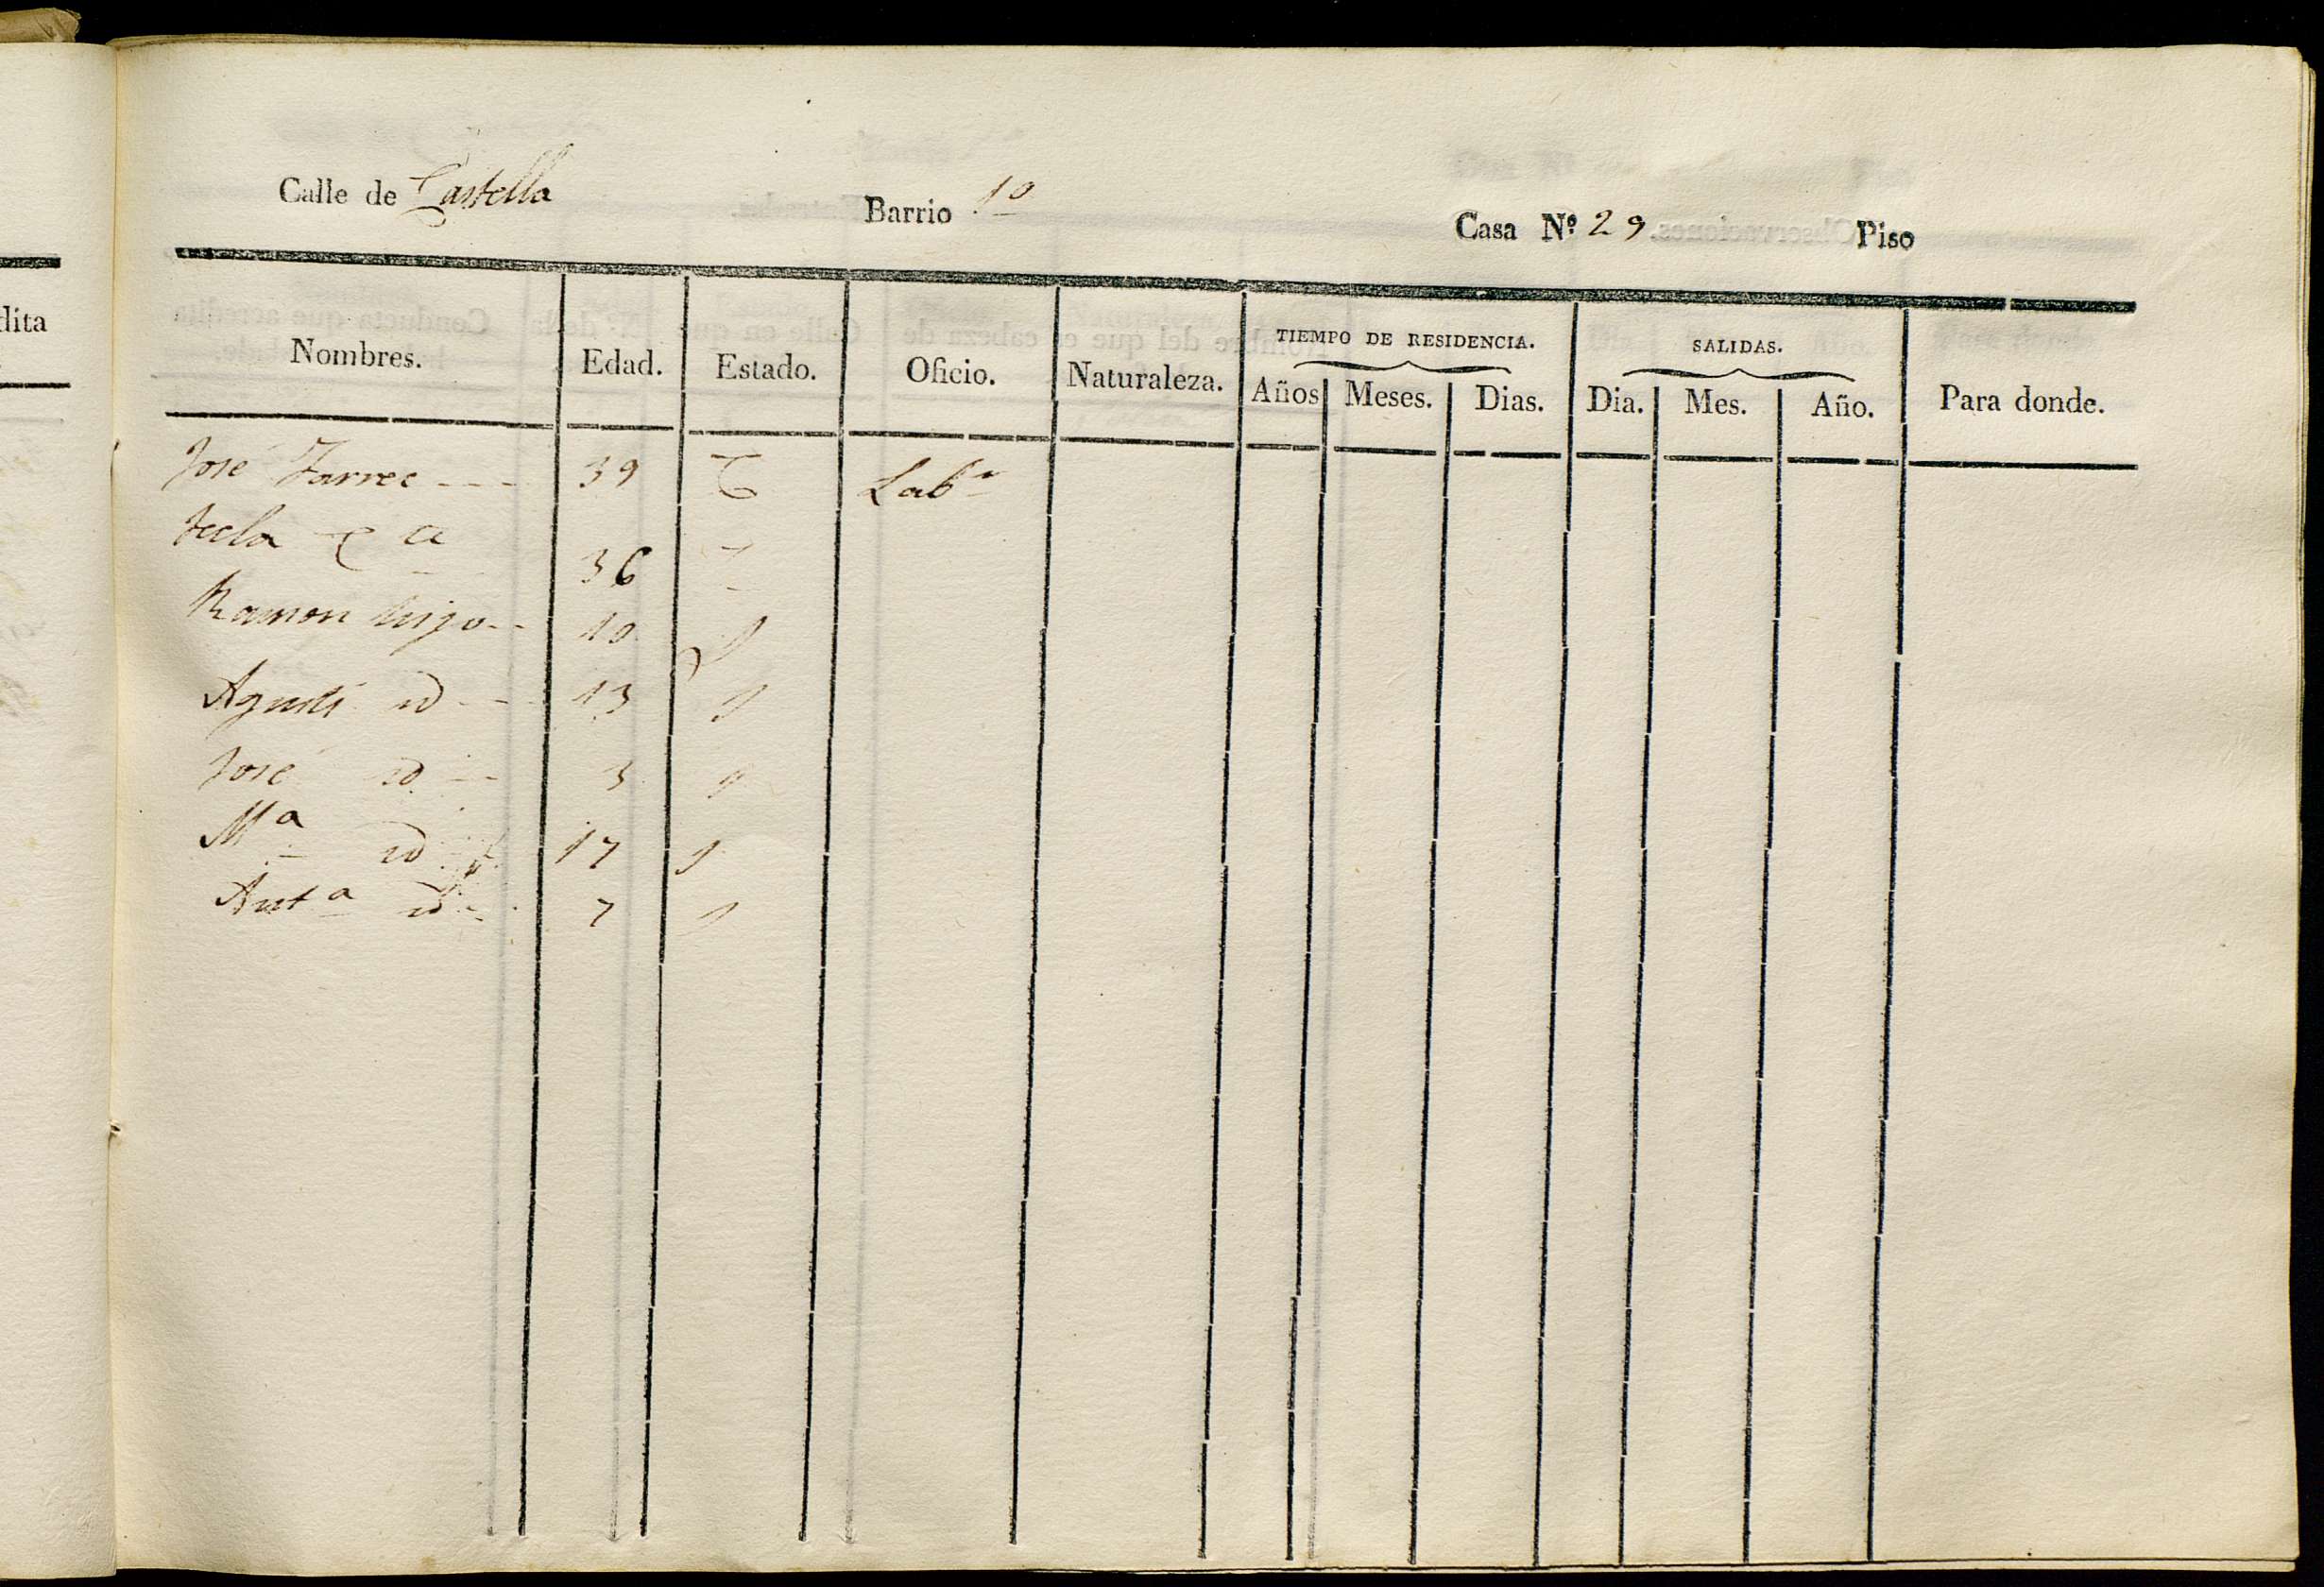 Calle de Castella Barrio 1º Casa Nº 29 Piso
dita
Nombres. Edad. Estado. Oficio. Naturaleza. TIEMPO DE RESIDENCIA. SALIDAS. Para donde.
Años Meses. Dias. Dia. Mes. Año.
José 39 C Labr
Tecla C a 36
Ramon hijo -- 10 S
Agustí id -- 13 S
José id -- 3 S
Mª id 17 S
Antª id -- 7 S